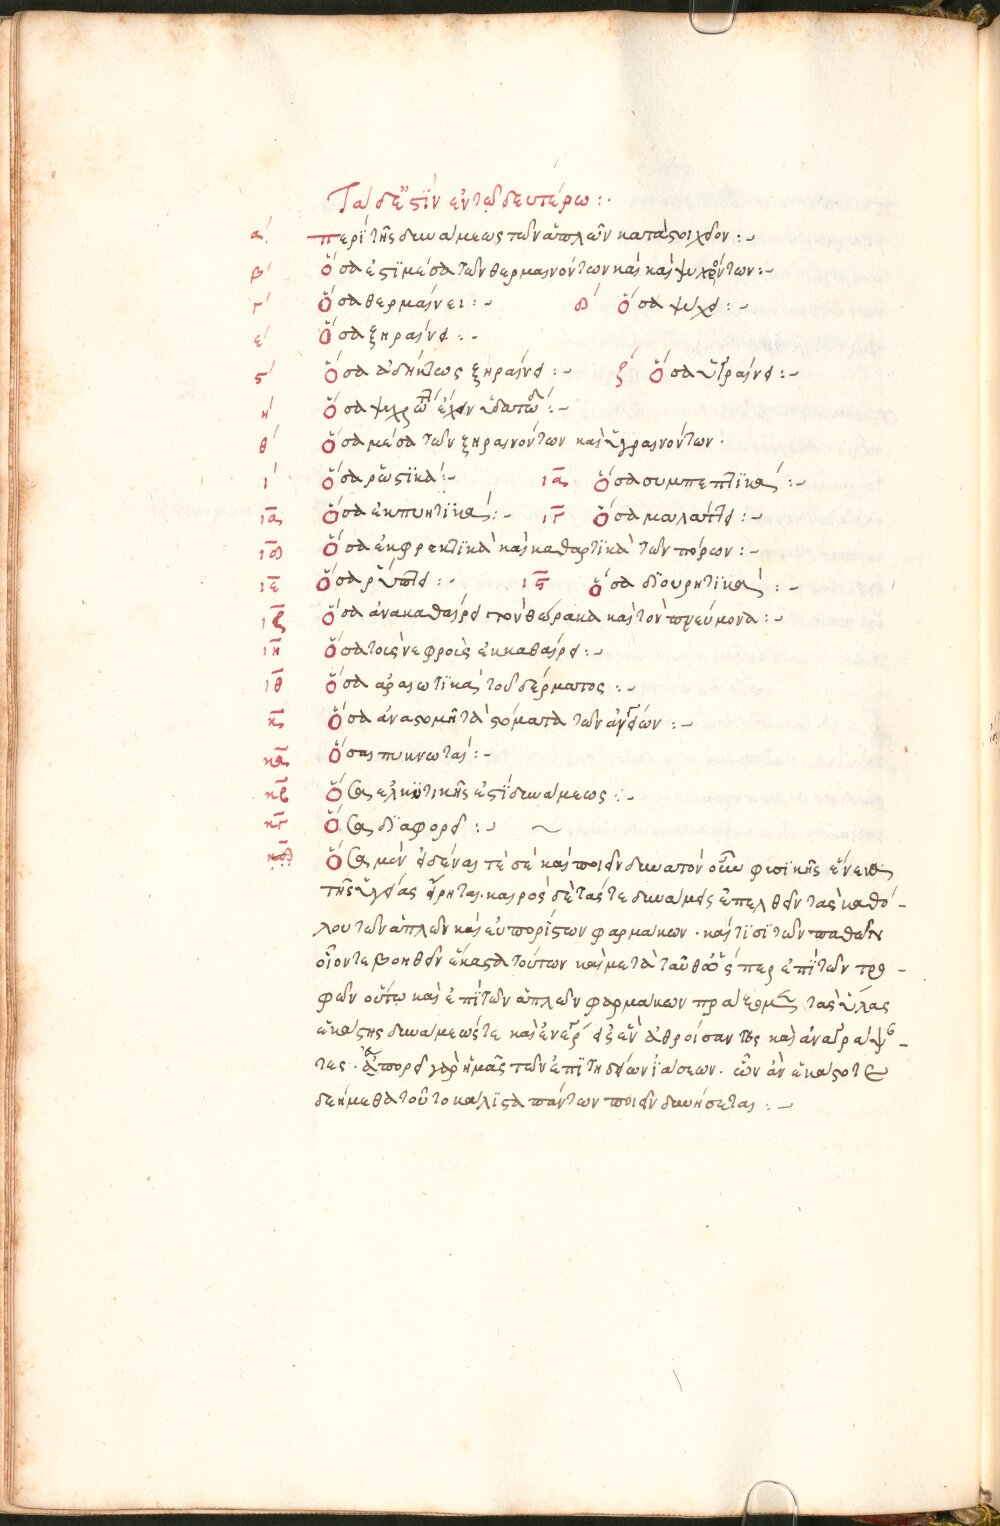 Τὰ δέ ἐστιν ἐν τῷ δευτέρω :·
α΄ περὶ τῆς δυνάμεως τῶν ἁπλῶν κατὰ στοιχεῖον :~
β΄ ὅσα ἐστὶ μέσα τῶν θερμαινόντων καὶ καὶ ψυχόντων :~
γ΄ ὅσα θερμαίνει :~ δ΄ ὅσα ψύχει :~
ε΄ ὅσα ξηραίνει :~
ϛ΄ ὅσα ἀδήκτως ξηραίνει :~ ζ΄ ὅσα ὑγραίνει :~
η΄ ὅσα ψυχρῶ
θ΄ ὅσα μέσα τῶν ξηραινόντων καὶ ὑγραινόντων ·
ι΄ ὅσα ῥωστικά :~ ια ὅσα συμπεπτικά :~
ια ὅσα ἐκπυητικά :~ ιγ ὅσα μαλάττει :~
ιδ ὅσα ἐκφρεκτικὰ καὶ καθαρτικὰ τῶν πόρων :~
ιε ὅσα ῥύπτει :~ ιϛ ὅσα διουρητικά :~
ιζ ὅσα ἀνακαθαίρει τὸν θώρακα καὶ τὸν πνεύμονα :~
ιη ὅσα τοὶς νεφροὶς ἐκκαθαίρει :~
ιθ ὅσα ἀραιωτικὰ τοῦ δέρματος :~
κ ὅσα ἀναστομῆ τὰ στόματα τῶν ἀγγείων :~
κα ὅσα πυκνωτά :~
κβ ὅσα ἑλκυτικῆς ἐστὶ δυνάμεως :~
κγ ὅσα διαφορεῖ :~
κδ ὅσα μὲν εἰδέναι τέ σε καὶ ποιεῖν δυνατὸν οὖν φυσικῆς ἕνεκα
τῆς ὑγείας εἴρηται · καιρὸς δὲ τάς τε δυνάμεις ἐπελθεῖν τὰς καθό -
λου τῶν ἁπλῶν καὶ εὐπορίστων φαρμάκων · καὶ τίσι τῶν παθῶν
οἷόν τε βοηθεῖν ἕκαστα τούτων καὶ μετὰ ταῦθ᾽ ὥσπερ ἐπὶ τῶν τρο -
φῶν οὕτω καὶ ἐπὶ τῶν ἁπλῶν φαρμάκων τὰς ὕλας
ἑκάστης δυνάμεώς τε καὶ ἐνεργείας ἀθροίσαντες καὶ ἀναγράψαν -
τες · ἀπορεῖ γὰρ ἡμᾶς τῶν ἐπιτηδείων ἰάσεων · ὧν ἂν ἑκάστοτε
δεήμεθα τοῦτο κάλιστα πάντων ποιεῖν δυνήσεται :~